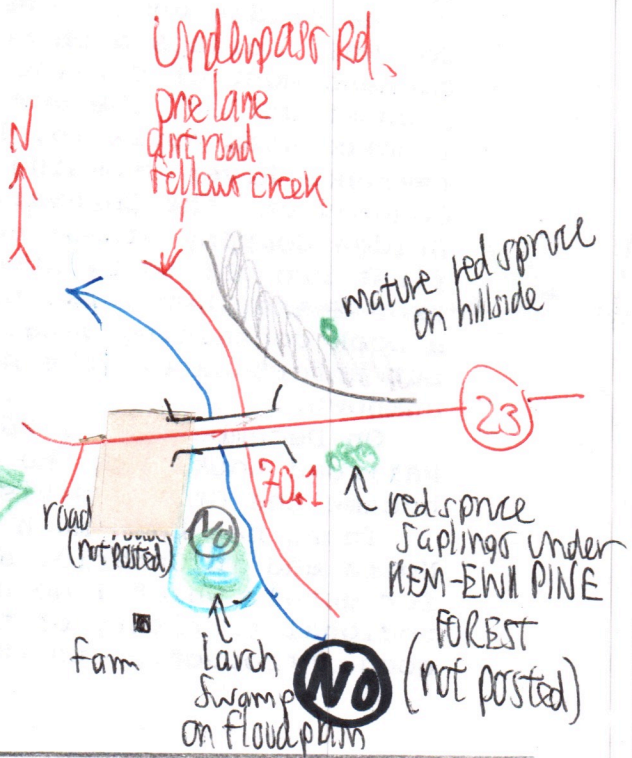 Underpass Rd.
one lane
dirt road
follows creek
N
mature red spruce
on hillside
23
70.1
road
(not posted)
No
red spruce
saplings under
HEM-EWH PINE
FOREST
(not posted)
farm
larch
swamp
on floodplain
No